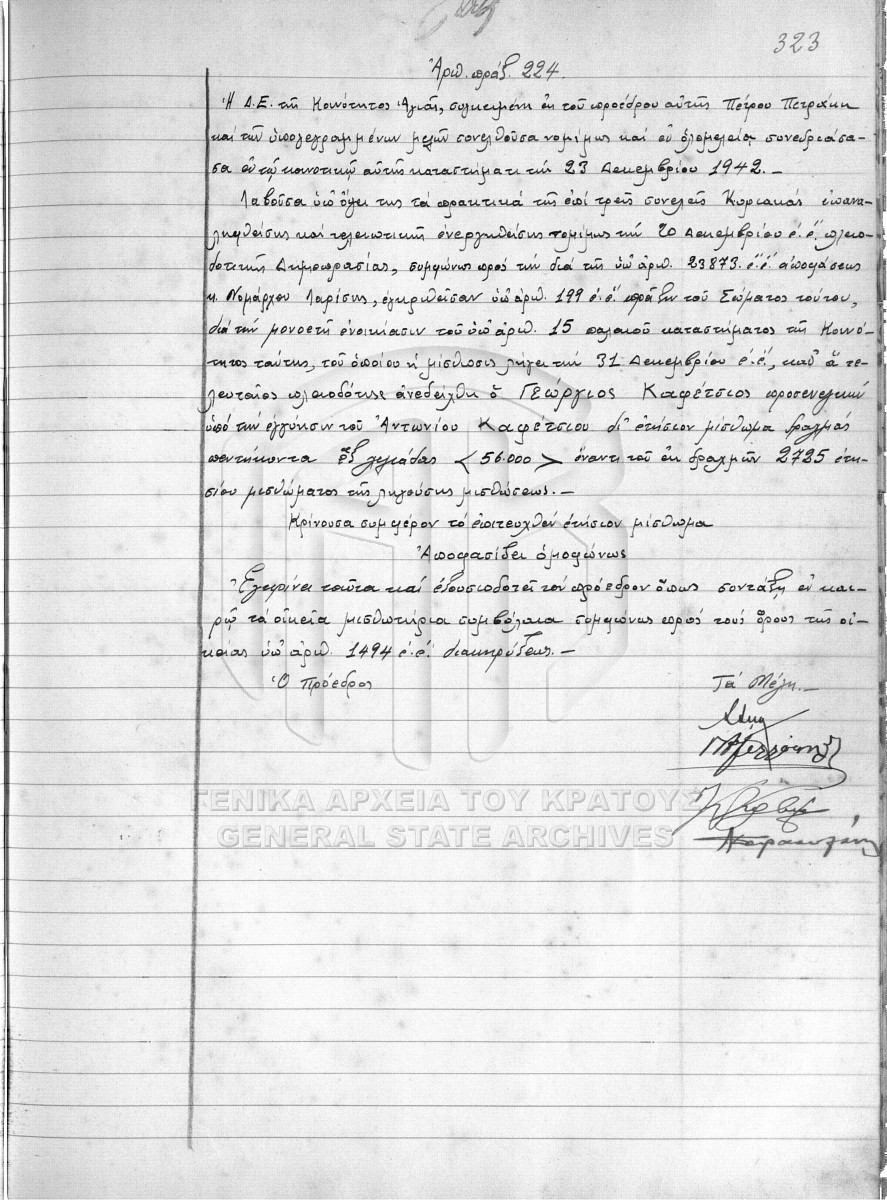 323
Ἀριθ. πράξ. 224.
Ἡ Δ.Ε. τῆς Κοινότητος Ἁγιᾶς, συγκειμένη ἐκ τοῦ προέδρου αὐτῆς Πέτρου Πετράκη
καὶ τῶν ὑπογεγραμμένων μελῶν συνελθοῦσα νομίμως καὶ ἐν ὁλομελείᾳ συνεδριάσα-
σα ἐν τῷ κοινοτικῷ αὐτῆς καταστήματι τὴν 23 Δεκεμβρίου 1942. —
Λαβοῦσα ὑπ' ὄψει της τὰ πρακτικὰ τῆς ἐπὶ τρεῖς συνεχεῖς Κυριακὰς ἐπανα-
ληφθείσης καὶ τελειωτικῆς ἐνεργηθείσης νομίμως τὴν 20 Δεκεμβρίου ἐ.ἔ. πλειο-
δοτικῆς Δημοπρασίας, συμφώνως πρὸς τὴν διὰ τῆς ὑπ' ἀριθ. 23873 ἐ.ἔ. ἀποφάσεως
κ. Νομάρχου Λαρίσης, ἐγκριθεῖσαν ὑπ' ἀριθ. 199 ἐ.ἔ. πρᾶξιν τοῦ Σώματος τούτου,
διὰ τὴν μονοετῆ ἐνοικίασιν τοῦ ὑπ' ἀριθ. 15 παλαιοῦ καταστήματος τῆς Κοινό-
τητος ταύτης, τοῦ ὁποίου ἡ μίσθωσις λήγει τὴν 31 Δεκεμβρίου ἐ.ἔ., καθ' ἃ τε-
λευταῖος πλειοδότης ἀνεδείχθη ὁ Γεώργιος Καφέτσιος προσενεγκὼν
ὑπὸ τὴν ἐγγύησιν τοῦ Ἀντωνίου Καφέτσιου δι' ἐτήσιον μίσθωμα δραχμὰς
πεντήκοντα ἓξ χιλιάδας < 56.000 > ἔναντι τοῦ ἐκ δραχμῶν 2725 ἐτη-
σίου μισθώματος τῆς ληγούσης μισθώσεως. —
Κρίνουσα συμφέρον τὸ ἐπιτευχθὲν ἐτήσιον μίσθωμα
Ἀποφασίζει ὁμοφώνως
Ἐγκρίνει ταῦτα καὶ ἐξουσιοδοτεῖ τὸν πρόεδρον ὅπως συντάξῃ ἐν και-
ρῷ τὰ οἰκεῖα μισθωτήρια συμβόλαια συμφώνως πρὸς τοὺς ὅρους τῆς οἰ-
κείας ὑπ' ἀριθ. 1494 ἐ.ἔ. διακηρύξεως. —
Ὁ Πρόεδρος Τὰ Μέλη. —
ΓΕΝΙΚΑ ΑΡΧΕΙΑ ΤΟΥ ΚΡΑΤΟΥΣ
GENERAL STATE ARCHIVES